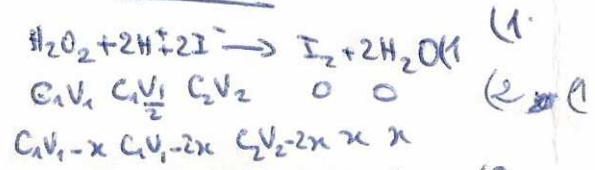 H₂O₂ + 2H⁺ + 2I⁻ → I₂ + 2H₂O (1
C₁V₁ C₁V₁/2 C₂V₂ 0 0 (2
C₁V₁-x C₁V₁-2x C₂V₂-2x x x